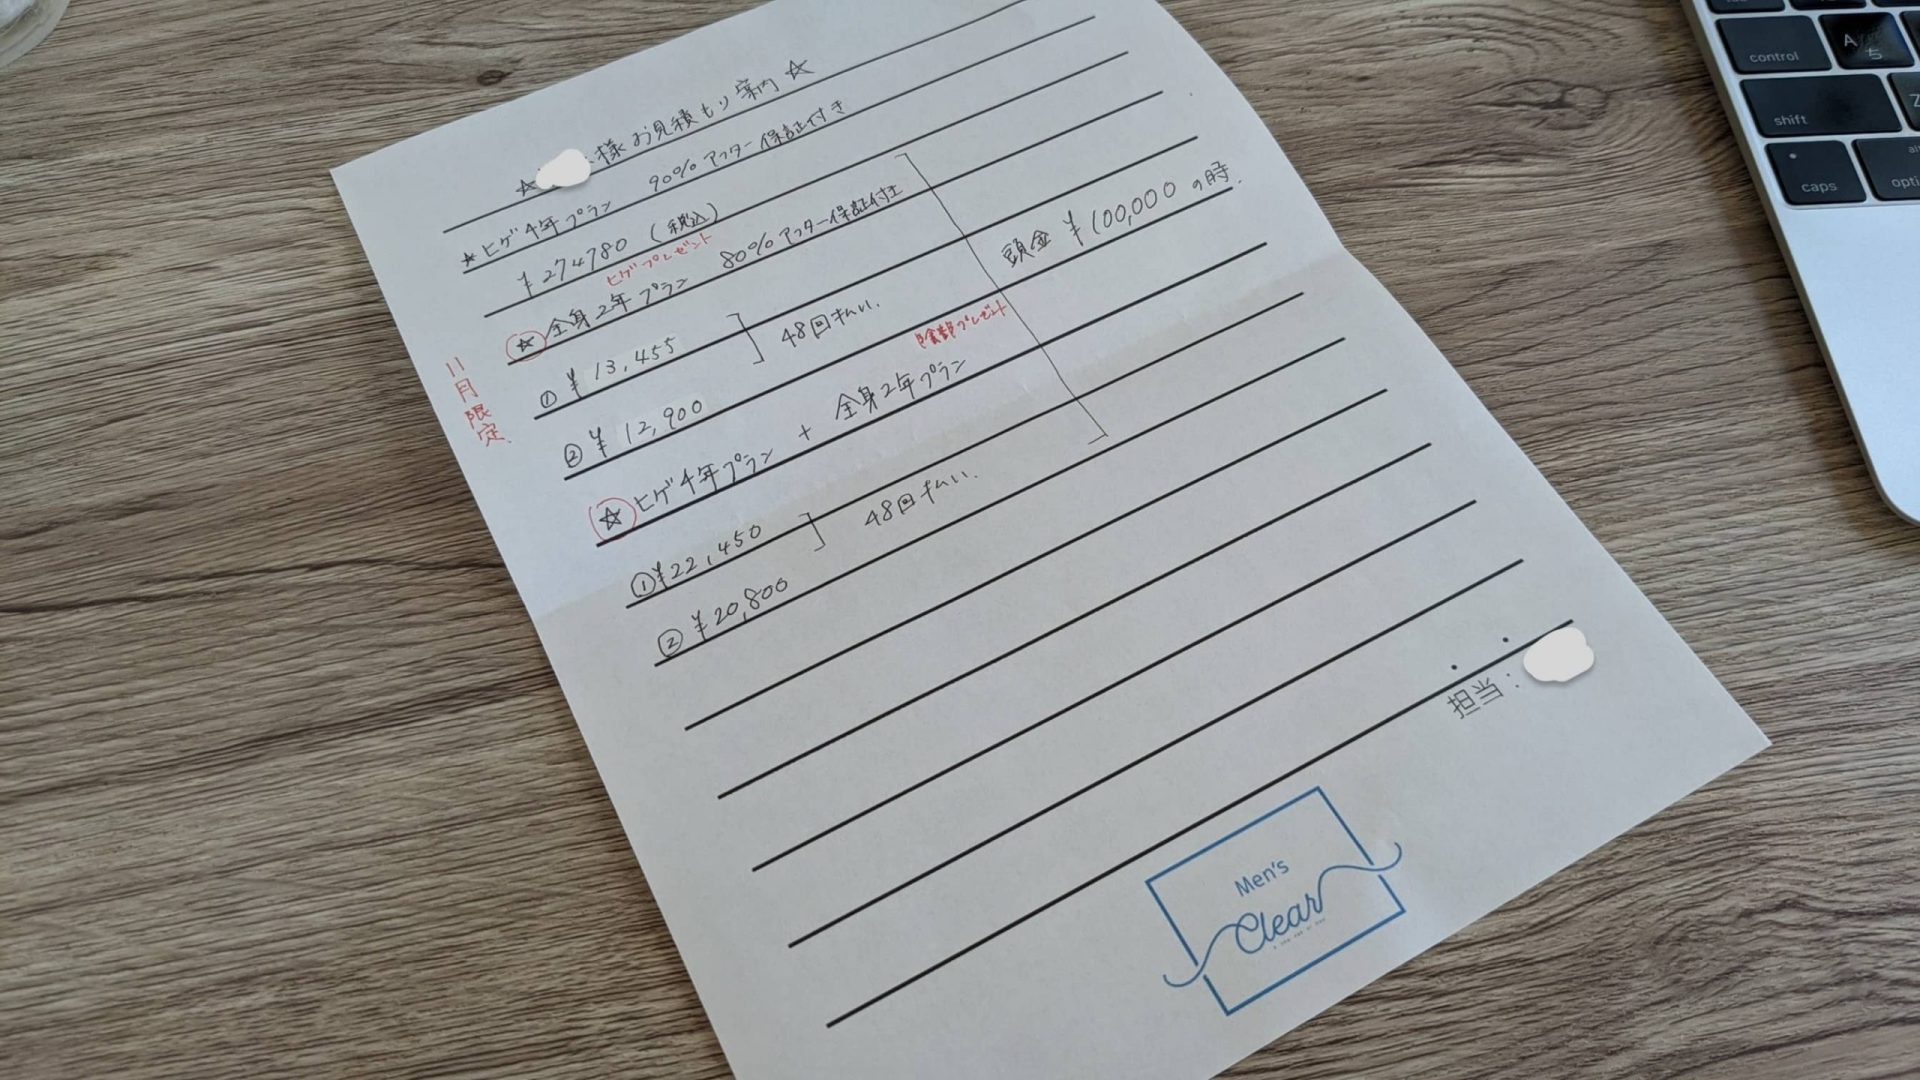 ☆ 様 お見積もり案内 ☆
★ヒゲ4年プラン 90% アフター保証付き
¥274780 (税込)
ヒゲプレゼント
☆ 全身2年プラン 80% アフター保証付き
11月限定
① ¥13,455
48回払い.
② ¥12,900
頭金 ¥100,000の時.
プレゼント
☆ ヒゲ4年プラン + 全身2年プラン
① ¥22,450
48回払い.
② ¥20,800
担当:
Men's
Clear
control
A
ち
shift
Z
caps
opti